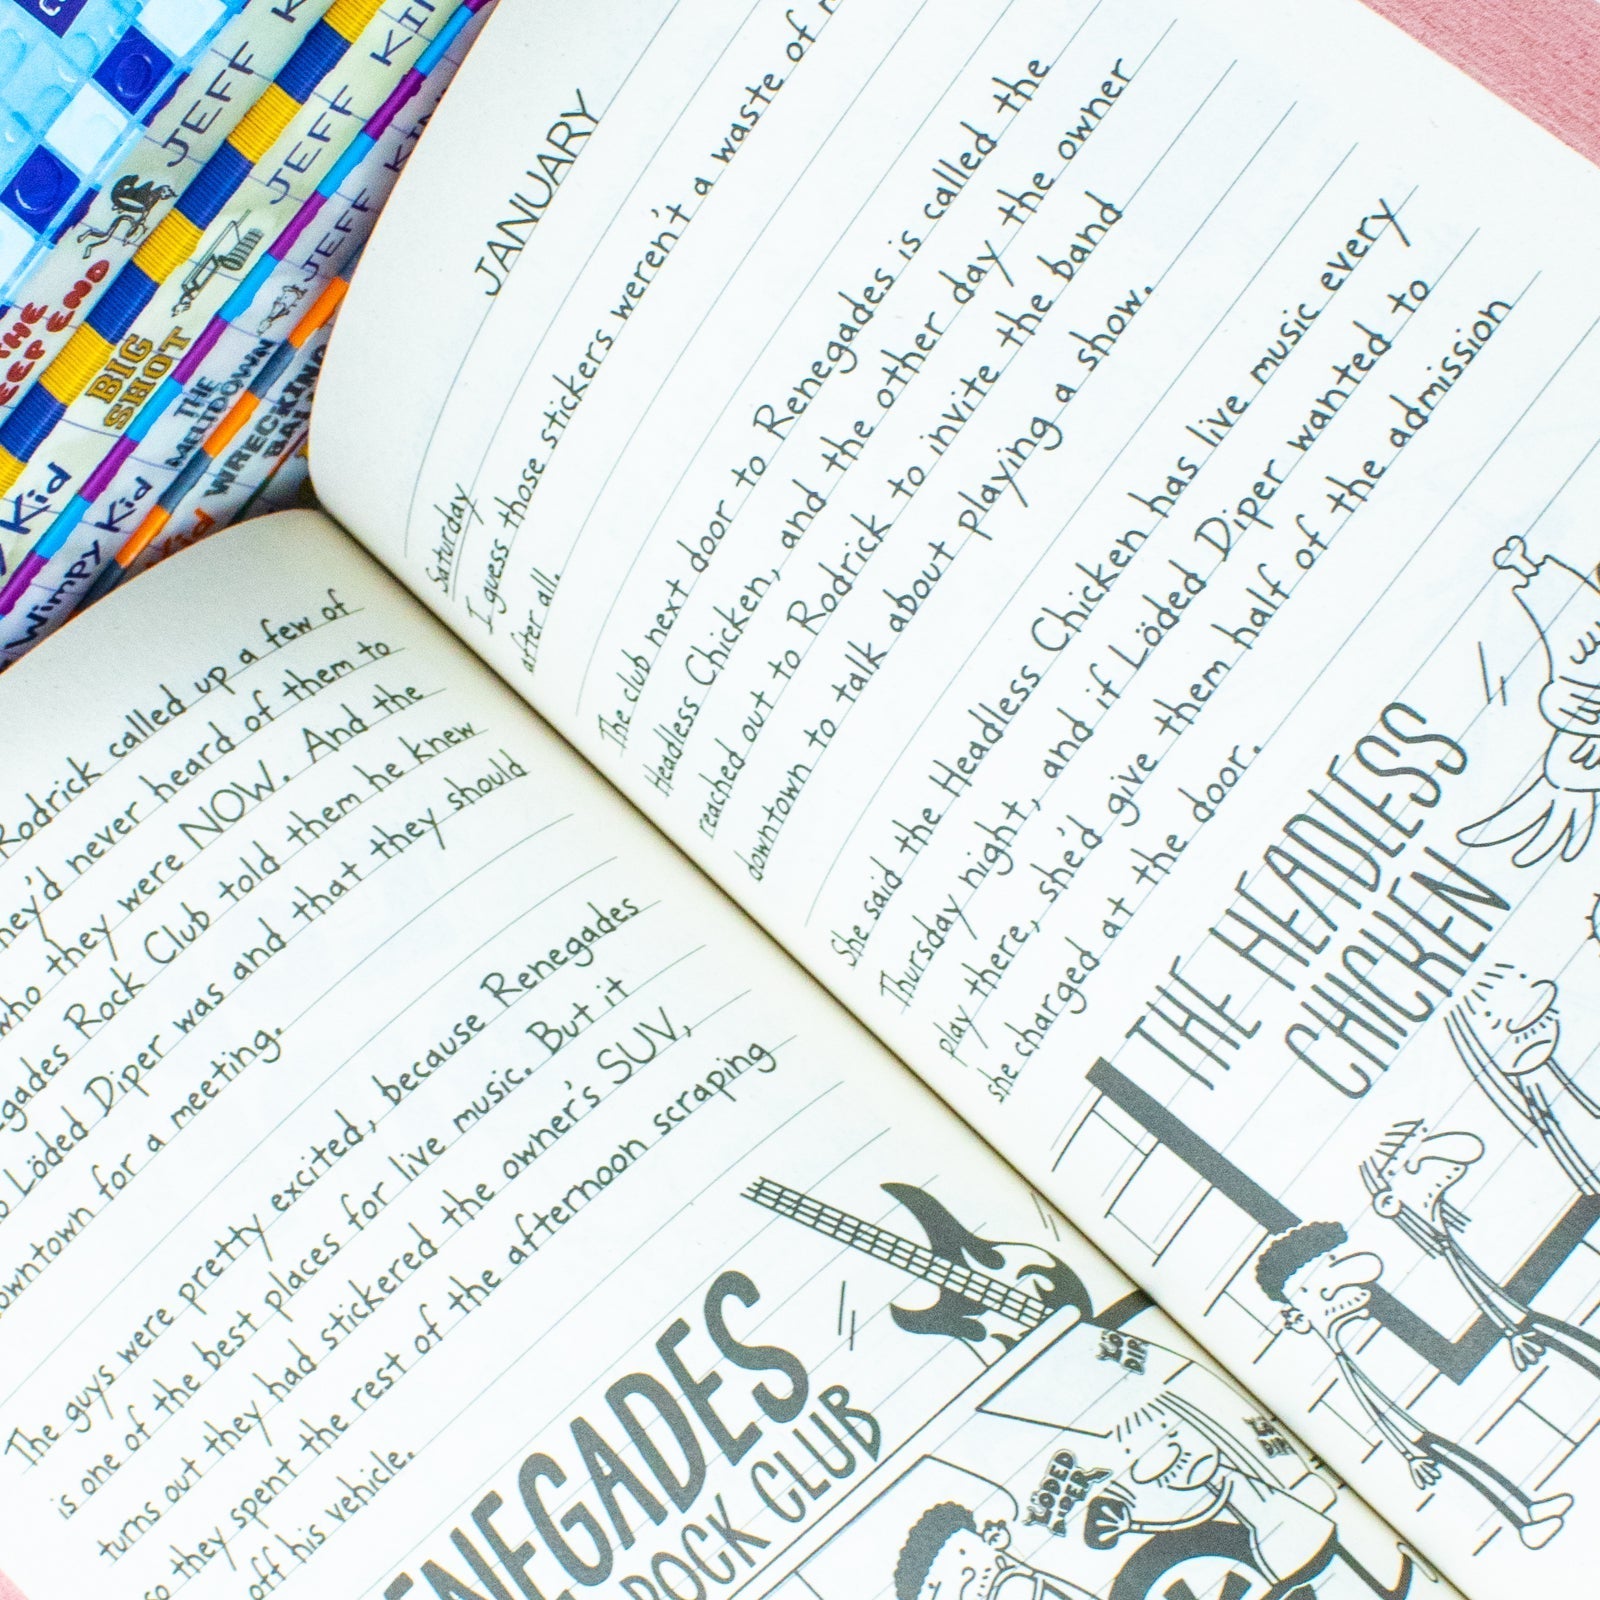 JEFF
THE
DEEP END
JEFF
BIG
SHOT
Kid
JEFF
THE
MELTDOWN
Wimpy Kid
WRECKING
Rodrick called up a few of
they'd never heard of them to
who they were NOW. And the
Renegades Rock Club told them he knew
Löded Diper was and that they should
downtown for a meeting.
The guys were pretty excited, because Renegades
is one of the best places for live music. But it
turns out they had stickered the owner's SUV,
so they spent the rest of the afternoon scraping
off his vehicle.
RENEGADES
ROCK CLUB
LÖDED
DIPER
JANUARY
Saturday
I guess those stickers weren't a waste of
after all.
The club next door to Renegades is called the
Headless Chicken, and the other day the owner
reached out to Rodrick to invite the band
downtown to talk about playing a show.
She said the Headless Chicken has live music every
Thursday night, and if Löded Diper wanted to
play there, she'd give them half of the admission
she charged at the door.
THE HEADLESS
CHICKEN